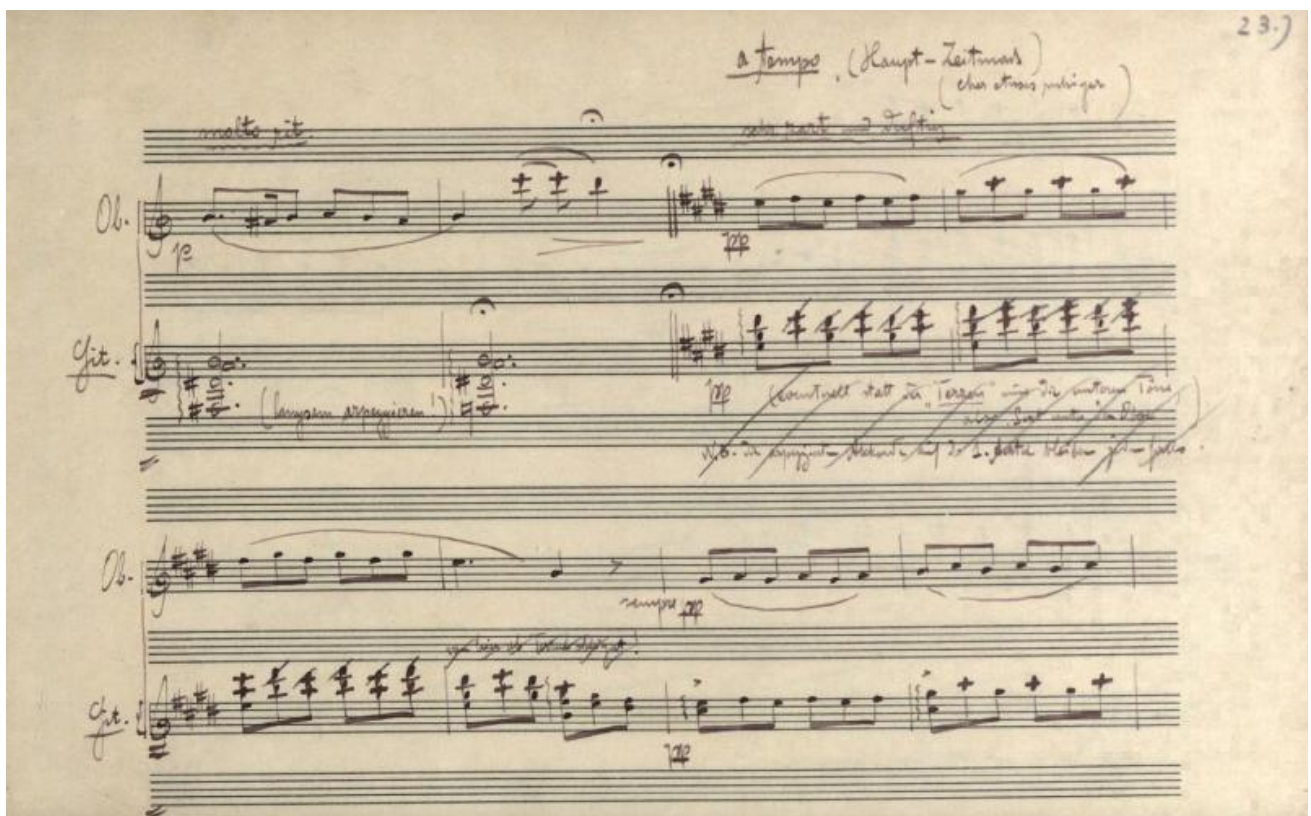 23.)
a tempo (Haupt-Zeitmass)
(eher etwas ruhiger)
molto rit.
sehr zart und duftig
Ob.
p
pp
Git.
(langsam arpeggieren!)
pp
(eventuell statt der "Terzen" nur die unteren Töne
also
N.B. die arpeggierten Akkorde auf der 1. bleiben
Ob.
sempre pp
Git.
pp